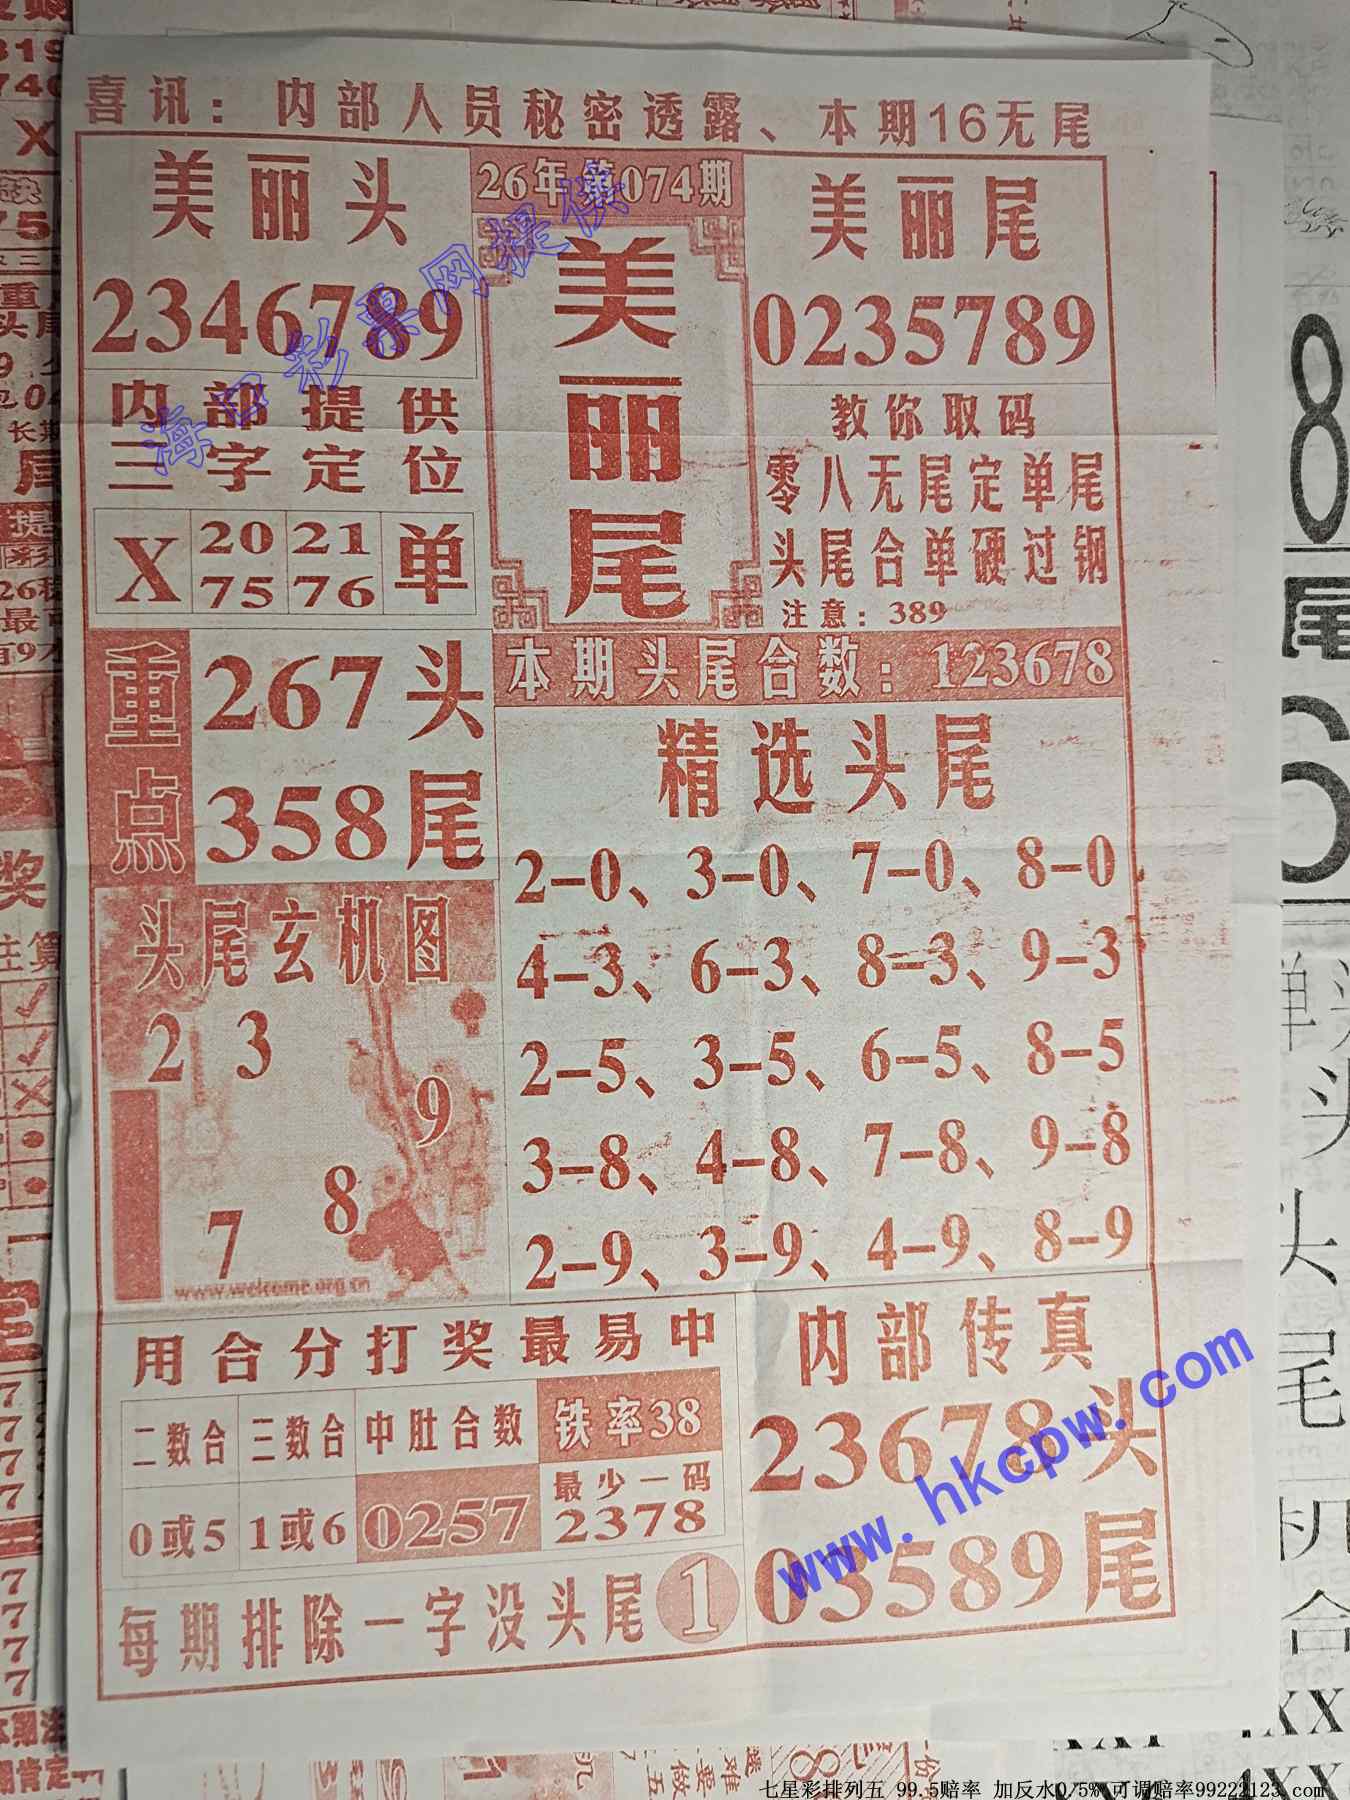 喜讯：内部人员秘密透露、本期16无尾
美丽头
2346789
26年第074期
美丽尾
美丽尾
0235789
内部提供
三字定位
X 20 21 单
75 76
教你取码
零八无尾定单尾
头尾合单硬过钢
注意：389
重点
267头
358尾
本期头尾合数：123678
精选头尾
2-0、3-0、7-0、8-0
4-3、6-3、8-3、9-3
2-5、3-5、6-5、8-5
3-8、4-8、7-8、9-8
2-9、3-9、4-9、8-9
头尾玄机图
2 3
9
8
7
www.welcome.org.cn
用合分打奖最易中
二数合 三数合 中肚合数 铁率38
0或5 1或6 0257 最少一码
2378
每期排除一字没头尾 1
内部传真
23678头
03589尾
海口彩票网提供
www.hkcpw.com
8
尾
单
头
头
尾
机
合
七星彩排列五 99.5赔率 加反水0/5% 可调赔率99222123.com